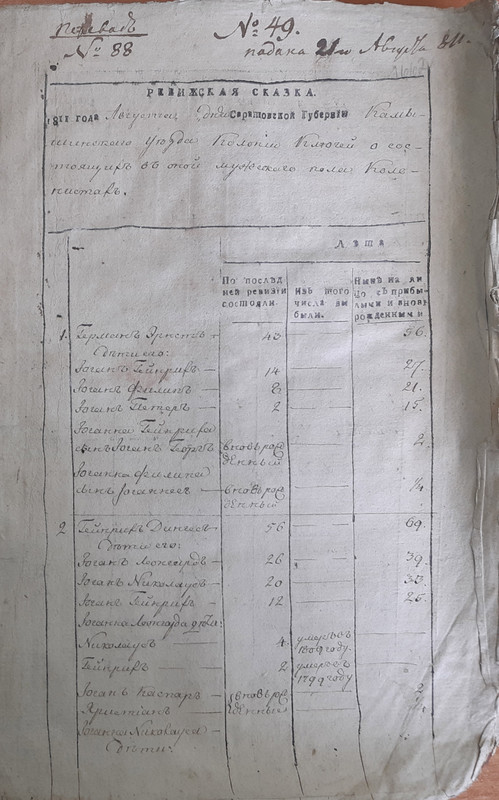 переводъ
№ 88
№ 49.
подана 21го Августа 811.
РЕВИЖСКАЯ СКАЗКА.
1811 года Августа дня Саратовской Губернїи Камы-
шинскаго уѣзда Колонїи Ключей о сос-
тоящихъ въ оной мужескаго пола Коло-
нистахъ.
Лѣта
По послѣд ней ревизїи состояли.
Изъ того числа вы были.
Нынѣ на ли цо съ прибы- лыми и вновь рожденными
1. Германъ Эрнстъ 43 56.
Дѣти его:
Іоганъ Гейнрихъ 14 27.
Іоганъ Филипъ 8 21.
Іоганъ Петеръ 2 15.
Іоганна Гейнриха
сынъ Іоганъ Георгъ вновь рож 2
денный
Іоганна Филипа
сынъ Іоганнесъ вновь рож ¼
денный
2 Гейнрихъ 56 69.
Дѣти его:
Іоганъ Леонгардъ 26 39.
Іоганъ Николаусъ 20 33.
Іоганъ Гейнрихъ 12 25.
Іоганна Леонгарда дѣти:
Николаусъ 4. умеръ въ
году.
Гейнрихъ 2 умеръ въ
1799 году
Іоганъ Каспаръ вновь рож 2
Христїанъ денный
Іоганна Николауса
дѣти: